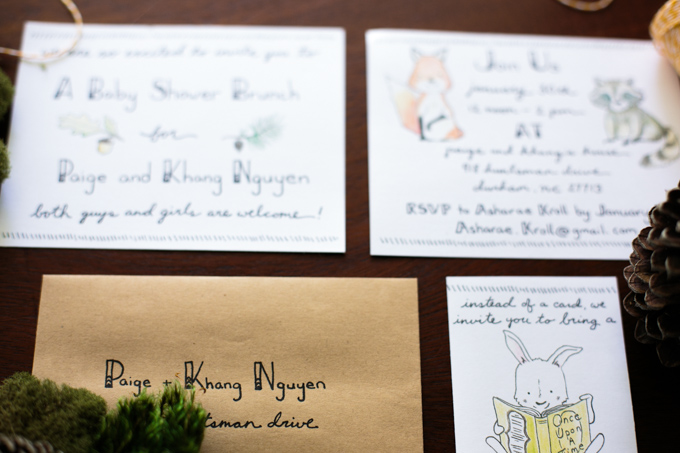 We are so excited to invite you to
A Baby Shower Brunch
for
Paige and Khang Nguyen
both guys and girls are welcome!
Join Us
AT
paige and khang's house
huntsman drive
durham, nc
RSVP to Asharae Kroll by January
Asharae.Kroll@gmail.com
Paige + Khang Nguyen
tsman drive
instead of a card, we
invite you to bring a
Once
Upon
A
Time